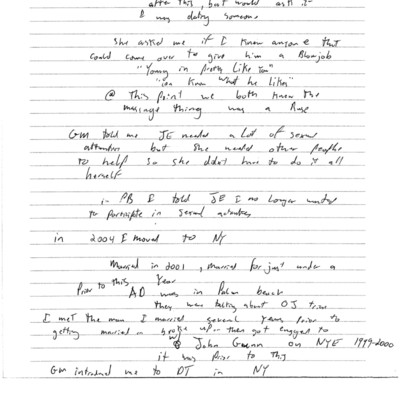 after this, but would ask if
I was dating someone
She asked me if I knew anyone that
could come over to give him a Blowjob
"Young in pretty like you"
"you know what he likes"
@ This point we both knew the
massage thing was a Ruse
GM told me JE needed a lot of sexual
attention but she needed other people
to help so she didn't have to do it all
herself
in PB I told JE I no longer wanted
to participate in sexual activities
in 2004 I moved to NY
Married in 2001, married for just under a
Year
Prior to this
AD was in Palm beach
they were talking about OJ trial
I met the man I married several years prior to
getting married - broke up - then got engaged to
@ John on NYE 1999-2000
it was prior to this
GM introduced me to DT in NY